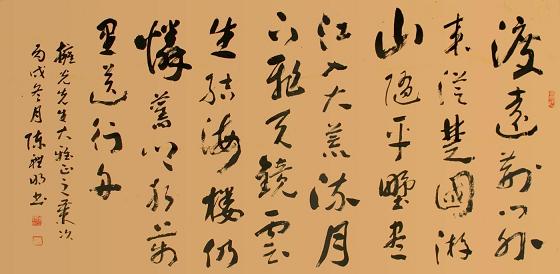 渡遠荊門外
来從楚國游
山隨平壄盡
江入大荒流月
下飛天鏡雲
生結海樓仍
憐舊鄉水萬
里送行舟
光先生大雅正之
丙戌冬月陳明書